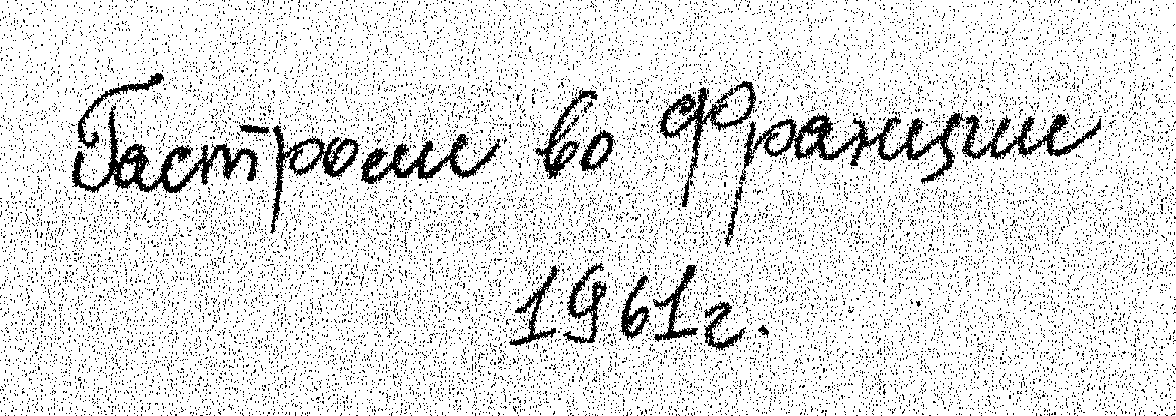 Гастроли во Франции
1961г.